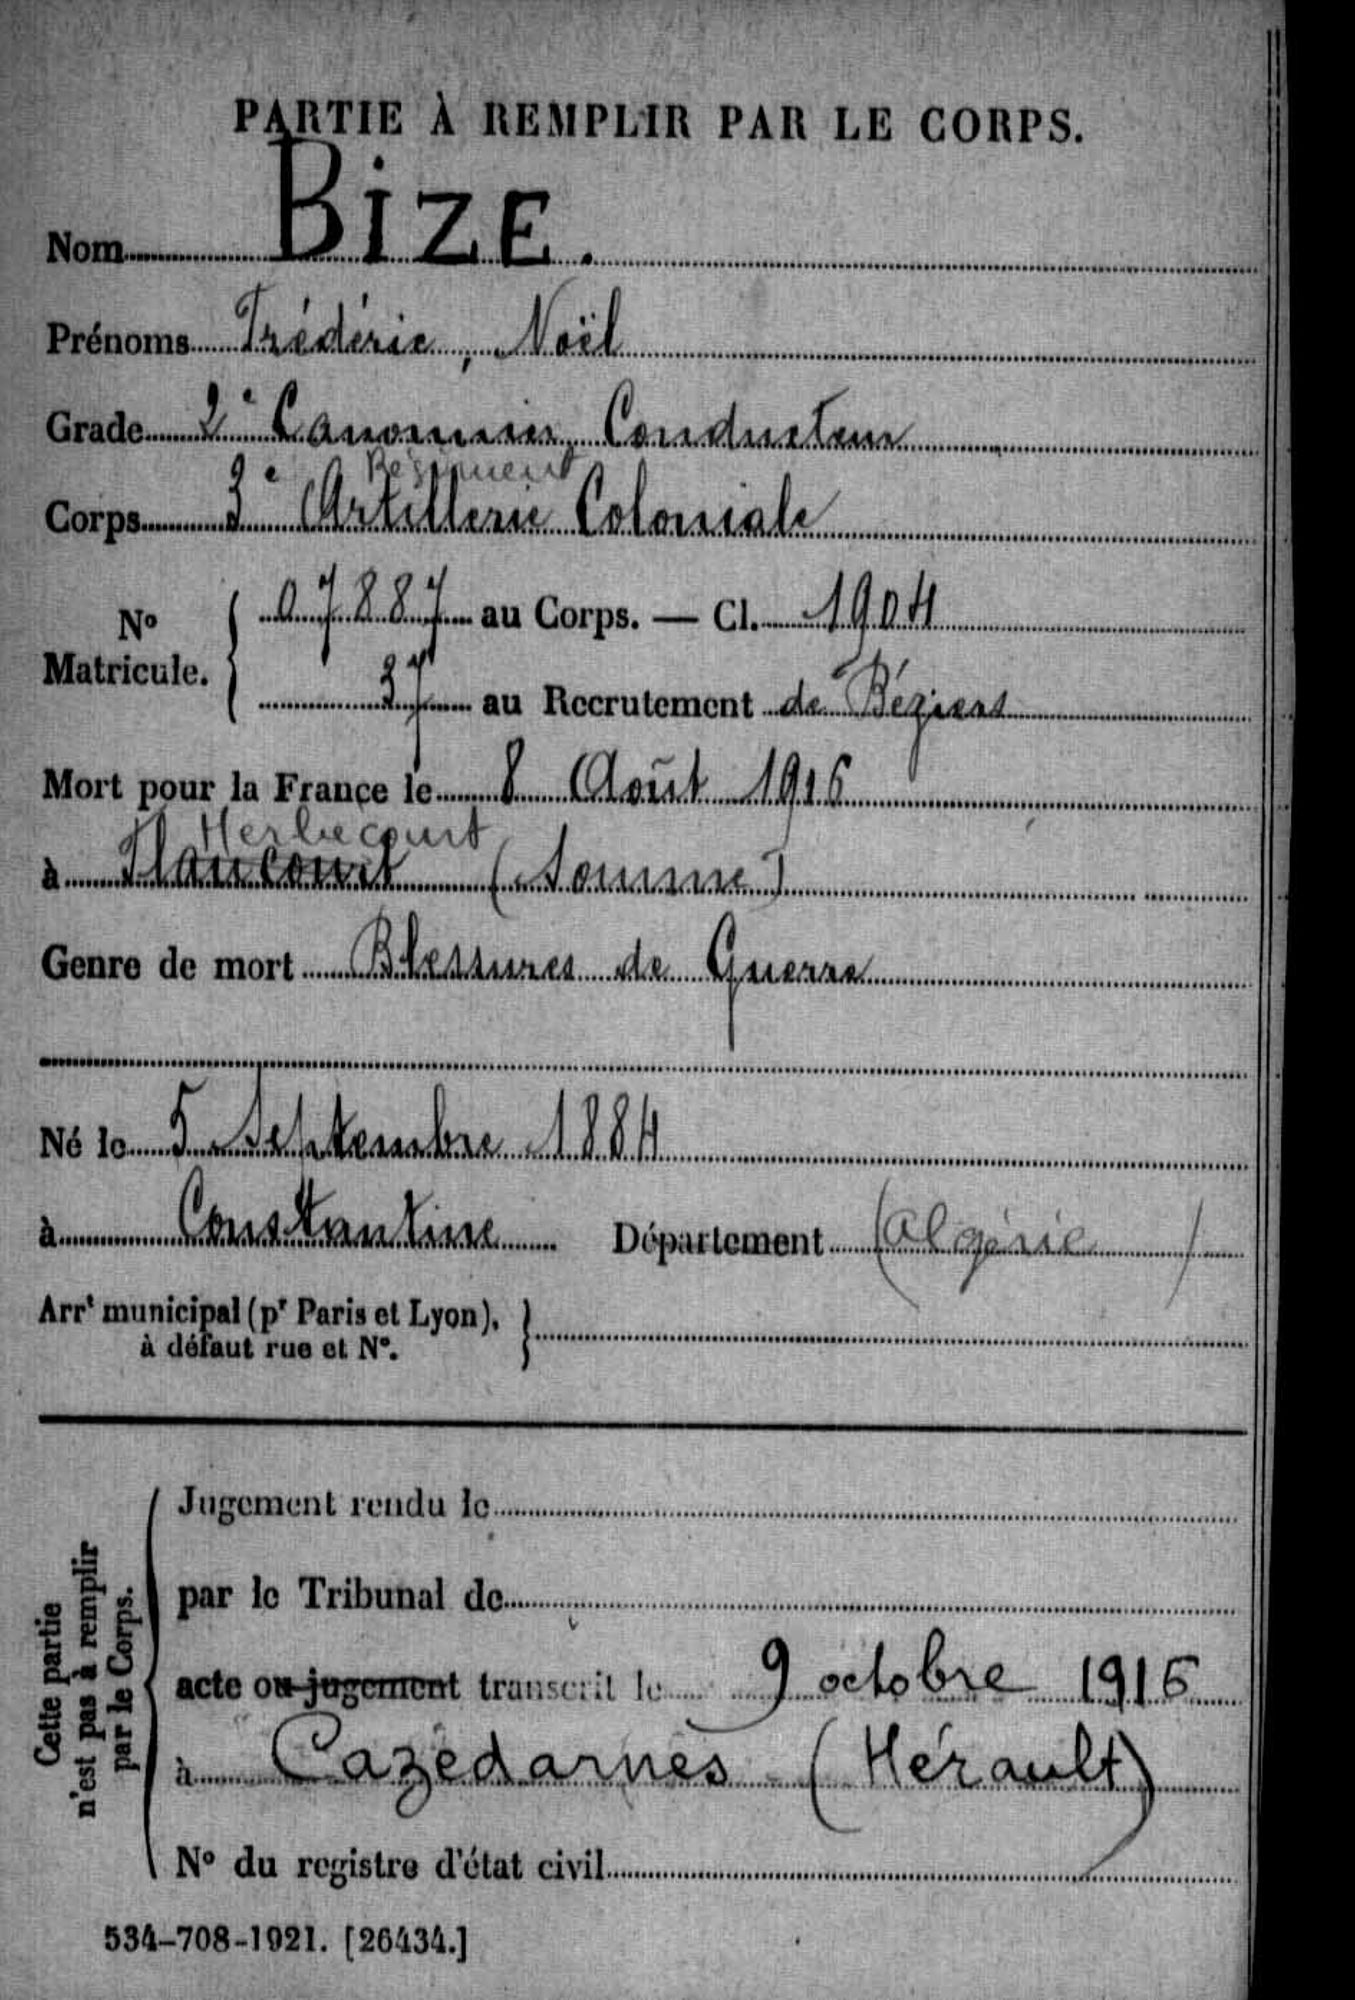 PARTIE À REMPLIR PAR LE CORPS.
Nom BIZE.
Prénoms Frédéric, Noël
Grade 2e Canonnier Conducteur
Régiment
Corps 3e Artillerie Coloniale
No Matricule. { 07887 au Corps. — Cl. 1904
37 au Recrutement de Béziers
Mort pour la France le 8 Août 1916
Herbécourt
à Flaucourt (Somme)
Genre de mort Blessures de Guerre
Né le 5 Septembre 1884
à Constantine Département (Algérie)
Arrt municipal (pr Paris et Lyon), }
à défaut rue et No.
Cette partie
n'est pas à remplir
par le Corps.
Jugement rendu le
par le Tribunal de
acte ou jugement transcrit le 9 octobre 1916
à Cazedarnes (Hérault)
No du registre d'état civil
534-708-1921. [26434.]